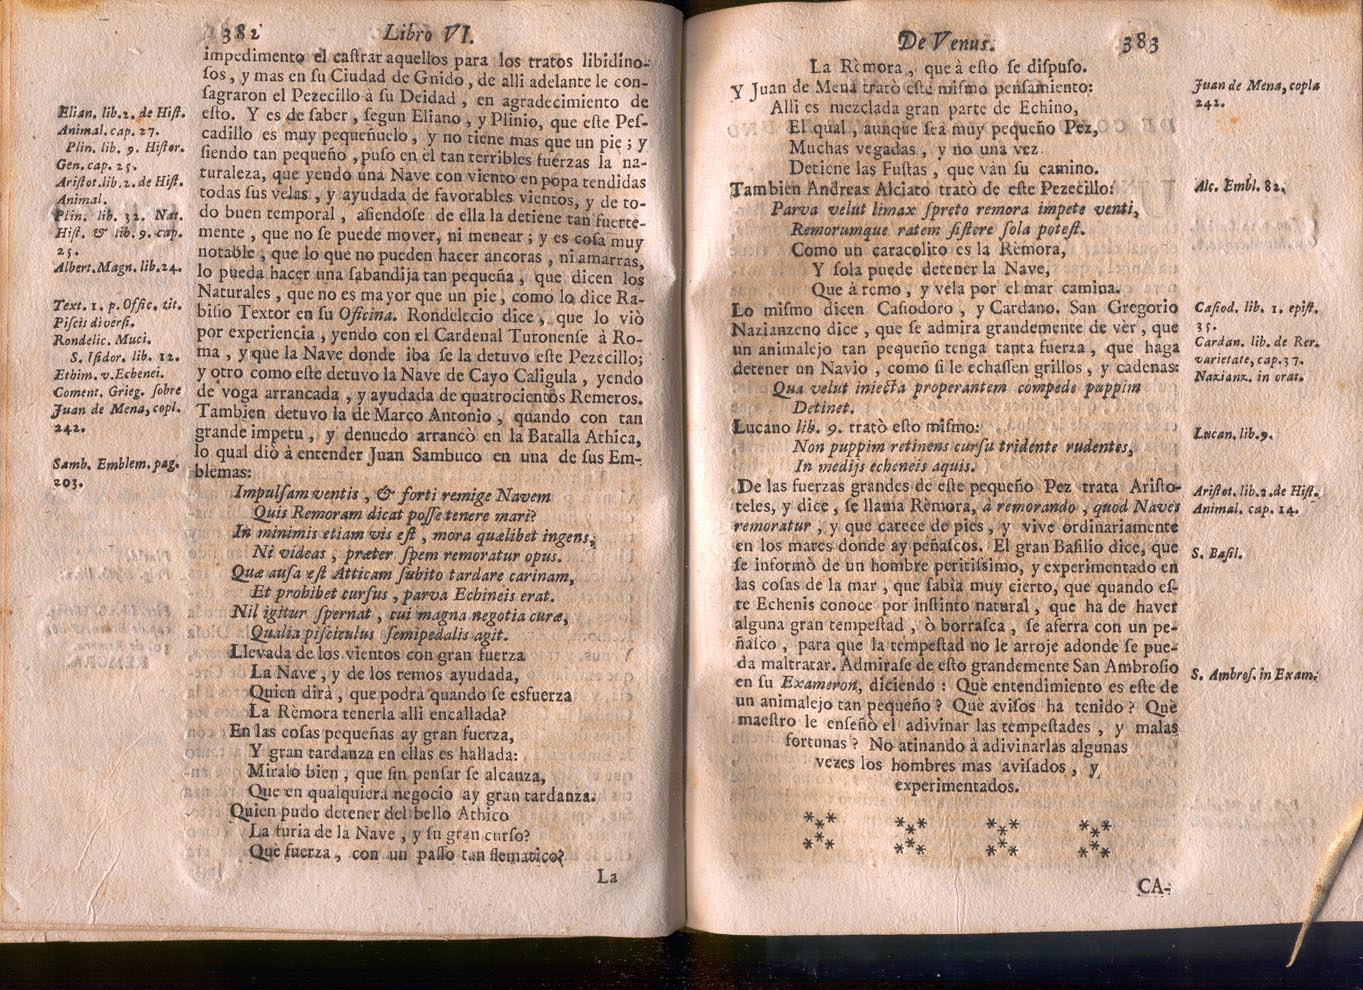 382
Libro VI.
impedimento el caſtrar aquellos para los tratos libidino-
ſos, y mas en ſu Ciudad de Gnido, de alli adelante le con-
ſagraron el Pezecillo à ſu Deidad, en agradecimiento de
eſto. Y es de ſaber, ſegun Eliano, y Plinio, que eſte Peſ-
cadillo es muy pequeñuelo, y no tiene mas que un pie; y
ſiendo tan pequeño, puſo en èl tan terribles fuerzas la na-
turaleza, que yendo una Nave con viento en popa tendidas
todas ſus velas, y ayudada de favorables vientos, y de to-
do buen temporal, aſiendoſe de ella la detiene tan fuerte-
mente, que no ſe puede mover, ni menear; y es coſa muy
notable, que lo que no pueden hacer ancoras, ni amarras,
lo pueda hacer una ſabandija tan pequeña, que dicen los
Naturales, que no es mayor que un pie, como lo dice Ra-
biſio Textor en ſu Oficina. Rondelecio dice, que lo viò
por experiencia, yendo con el Cardenal Turonenſe à Ro-
ma, y que la Nave donde iba ſe la detuvo eſte Pezecillo;
y otro como eſte detuvo la Nave de Cayo Caligula, yendo
de voga arrancada, y ayudada de quatrocientos Remeros.
Tambien detuvo la de Marco Antonio, quando con tan
grande impetu, y denuedo arrancò en la Batalla Athica,
lo qual diò à entender Juan Sambuco en una de ſus Em-
blemas:
Impulſam ventis, & forti remige Navem
Quis Remoram dicat poſſe tenere mari?
In minimis etiam vis eſt, mora quælibet ingens,
Ni videas, præter ſpem remoratur opus.
Quæ auſa eſt Atticam ſubito tardare carinam,
Et prohibet curſus, parva Echineis erat.
Nil igitur ſpernat, cui magna negotia curæ,
Qualia piſciculus ſemipedalis agit.
Llevada de los vientos con gran fuerza
La Nave, y de los remos ayudada,
Quien dirà, que podrà quando se esfuerza
La Rèmora tenerla alli encallada?
En las coſas pequeñas ay gran fuerza,
Y gran tardanza en ellas es hallada:
Miralo bien, que ſin penſar ſe alcanza,
Que en qualquiera negocio ay gran tardanza.
Quien pudo detener del bello Athico
La furia de la Nave, y ſu gran curſo?
Què fuerza, con un paſſo tan flematico?
La
Elian. lib. 2. de Hiſt.
Animal. cap. 27.
Plin. lib. 9. Hiſtor.
Gen. cap. 25.
Ariſtot. lib. 2. de Hiſt.
Animal.
Plin. lib. 32. Nat.
Hiſt. & lib. 9. cap.
25.
Albert. Magn. lib. 24.
Text. 1. p. Offic. tit.
Piſcis diverſi.
Rondelic. Muci.
S. Iſidor. lib. 12.
Ethim. v. Echenei.
Coment. Grieg. ſobre
Juan de Mena, copl.
242.
Samb. Emblem. pag.
203.
De Venus.
383
La Rèmora, que à eſto ſe diſpuſo.
Y Juan de Mena tratò eſte miſmo penſamiento:
Alli es mezclada gran parte de Echino,
El qual, aunque ſea muy pequeño Pez,
Muchas vegadas, y no una vez
Detiene las Fuſtas, que vàn ſu camino.
Tambien Andreas Alciato tratò de eſte Pezecillo:
Parva velut limax ſpreto remora impete venti,
Remorumque ratem ſiſtere ſola poteſt.
Como un caracolito es la Rèmora,
Y ſola puede detener la Nave,
Que à remo, y vela por el mar camina.
Lo miſmo dicen Caſiodoro, y Cardano. San Gregorio
Nazianzeno dice, que ſe admira grandemente de vèr, que
un animalejo tan pequeño tenga tanta fuerza, que haga
detener un Navio, como ſi le echaſſen grillos, y cadenas:
Qua velut iniecta properantem compede puppim
Detinet.
Lucano lib. 9. tratò eſto miſmo:
Non puppim retinens curſu tridente rudentes,
In medijs echeneis aquis.
De las fuerzas grandes de eſte pequeño Pez trata Ariſto-
teles, y dice, ſe llama Rèmora, à remorando, quod Naves
remoratur, y que carece de pies, y vive ordinariamente
en los mares donde ay peñaſcos. El gran Baſilio dice, que
ſe informò de un hombre peritiſſimo, y experimentado en
las coſas de la mar, que ſabia muy cierto, que quando eſ-
te Echenis conoce por inſtinto natural, que ha de haver
alguna gran tempeſtad, ò borraſca, ſe aferra con un pe-
ñaſco, para que la tempeſtad no le arroje adonde ſe pue-
da maltratar. Admiraſe de eſto grandemente San Ambroſio
en ſu Exameron, diciendo: Què entendimiento es eſte de
un animalejo tan pequeño? Què aviſos ha tenido? Què
maeſtro le enſeñò el adivinar las tempeſtades, y malas
fortunas? No atinando à adivinarlas algunas
vezes los hombres mas aviſados, y
experimentados.
CA-
Juan de Mena, copla
242.
Alc. Embl. 82.
Caſiod. lib. 1. epiſt.
35.
Cardan. lib. de Rer.
varietate, cap. 37.
Nazianz. in orat.
Lucan. lib. 9.
Ariſtot. lib. 2. de Hiſt.
Animal. cap. 14.
S. Baſil.
S. Ambroſ. in Exam.